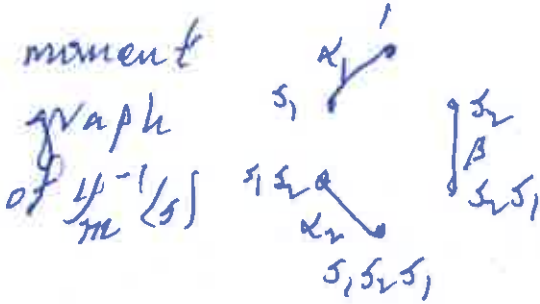 moment
graph
of ψ_m^{-1}(s)
1
α_1
s_1
s_2
β
s_1 s_2
s_2 s_1
α_2
s_1 s_2 s_1